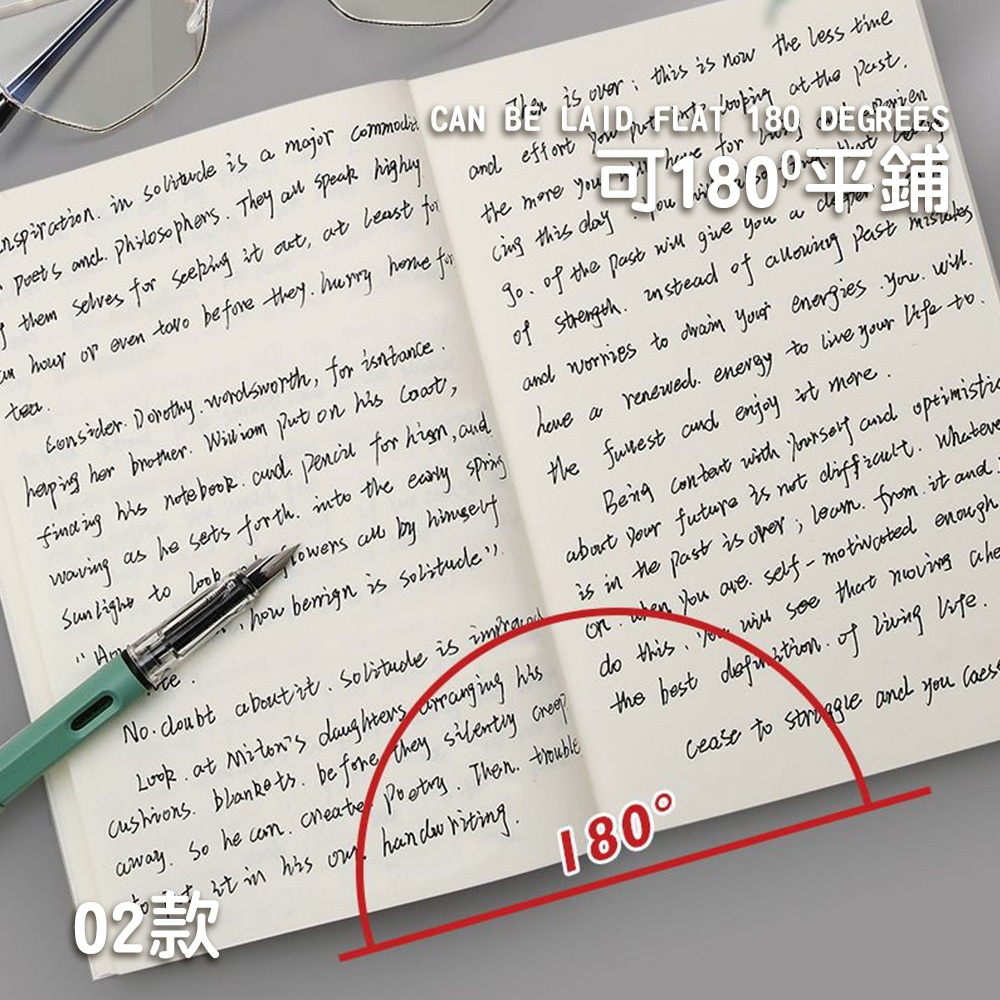 CAN BE LAID FLAT 180 DEGREES
可180°平鋪
inspiration. in solitude is a major commodit
poets and. philosophers. They all speak highly
them selves for seeking it out, at least for
hour or even two before they. hurry home for
tea.
Consider. Dorothy. wordsworth, for isntance.
heping her brother. William put on his Coat,
finding his notebook. and. pencil for him, and.
waving as he sets forth. into the early spring
sunlight to look flowers all by himself
how benign is solitude".
No. doubt about it. solitude is improved
Look. at Milton's daughters arranging his
cushions. blankets. before they silently creep
away. So he can. create Poetry. Then. trouble
to it in his own handwriting.
Then is over; this is now the less time
and effort You put into looking at the Past.
the more you will have for
cing this day. You will also that
go. of the Past will give You a deeper
of strength. instead of allowing Past mistakes
and worries to drain your energies. you. will.
have a renewed. energy to live your life to.
the fullest and enjoy it more.
Being content with Yourself and optimistic
about Your future is not difficult. Whatever
is in the Past is over; learn. from. it and
on. when You are. self-motivated enough
do this. You will see that moving ahe
the best definition. of living life.
cease to struggle and you cease
180°
02款